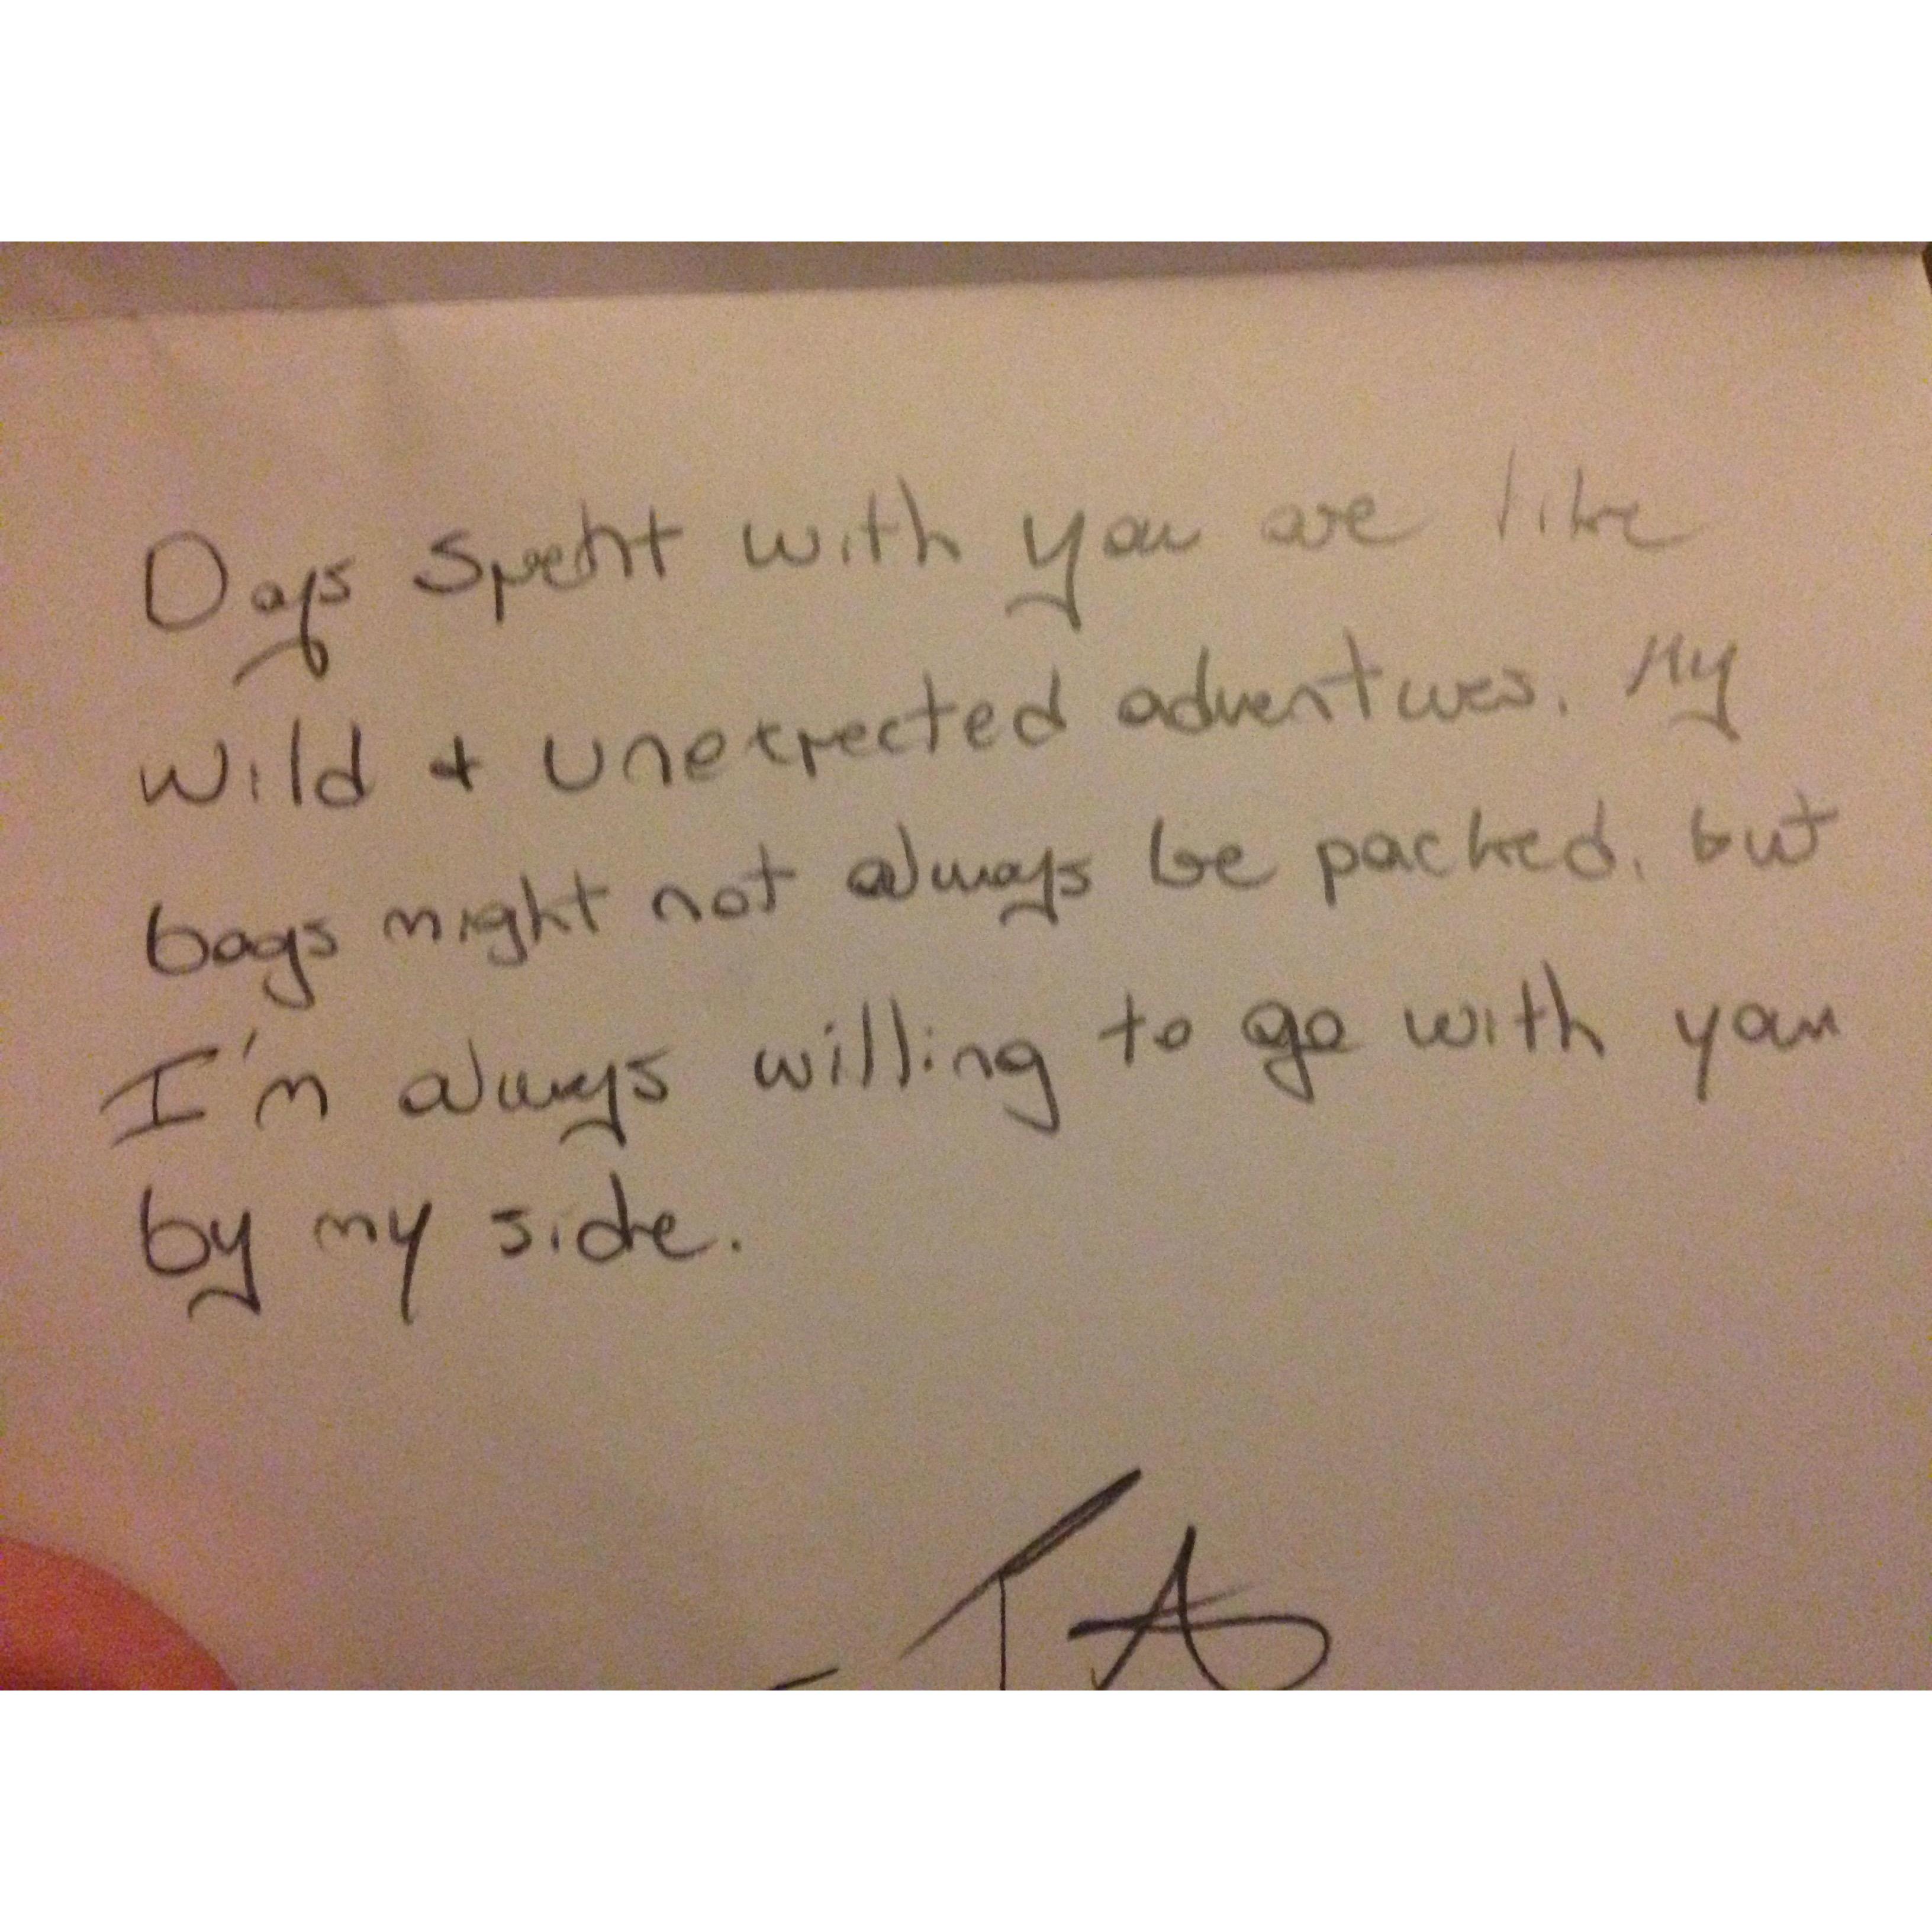 Days spent with you are like
wild + unexpected adventures. My
bags might not always be packed, but
I'm always willing to go with you
by my side.
- TA